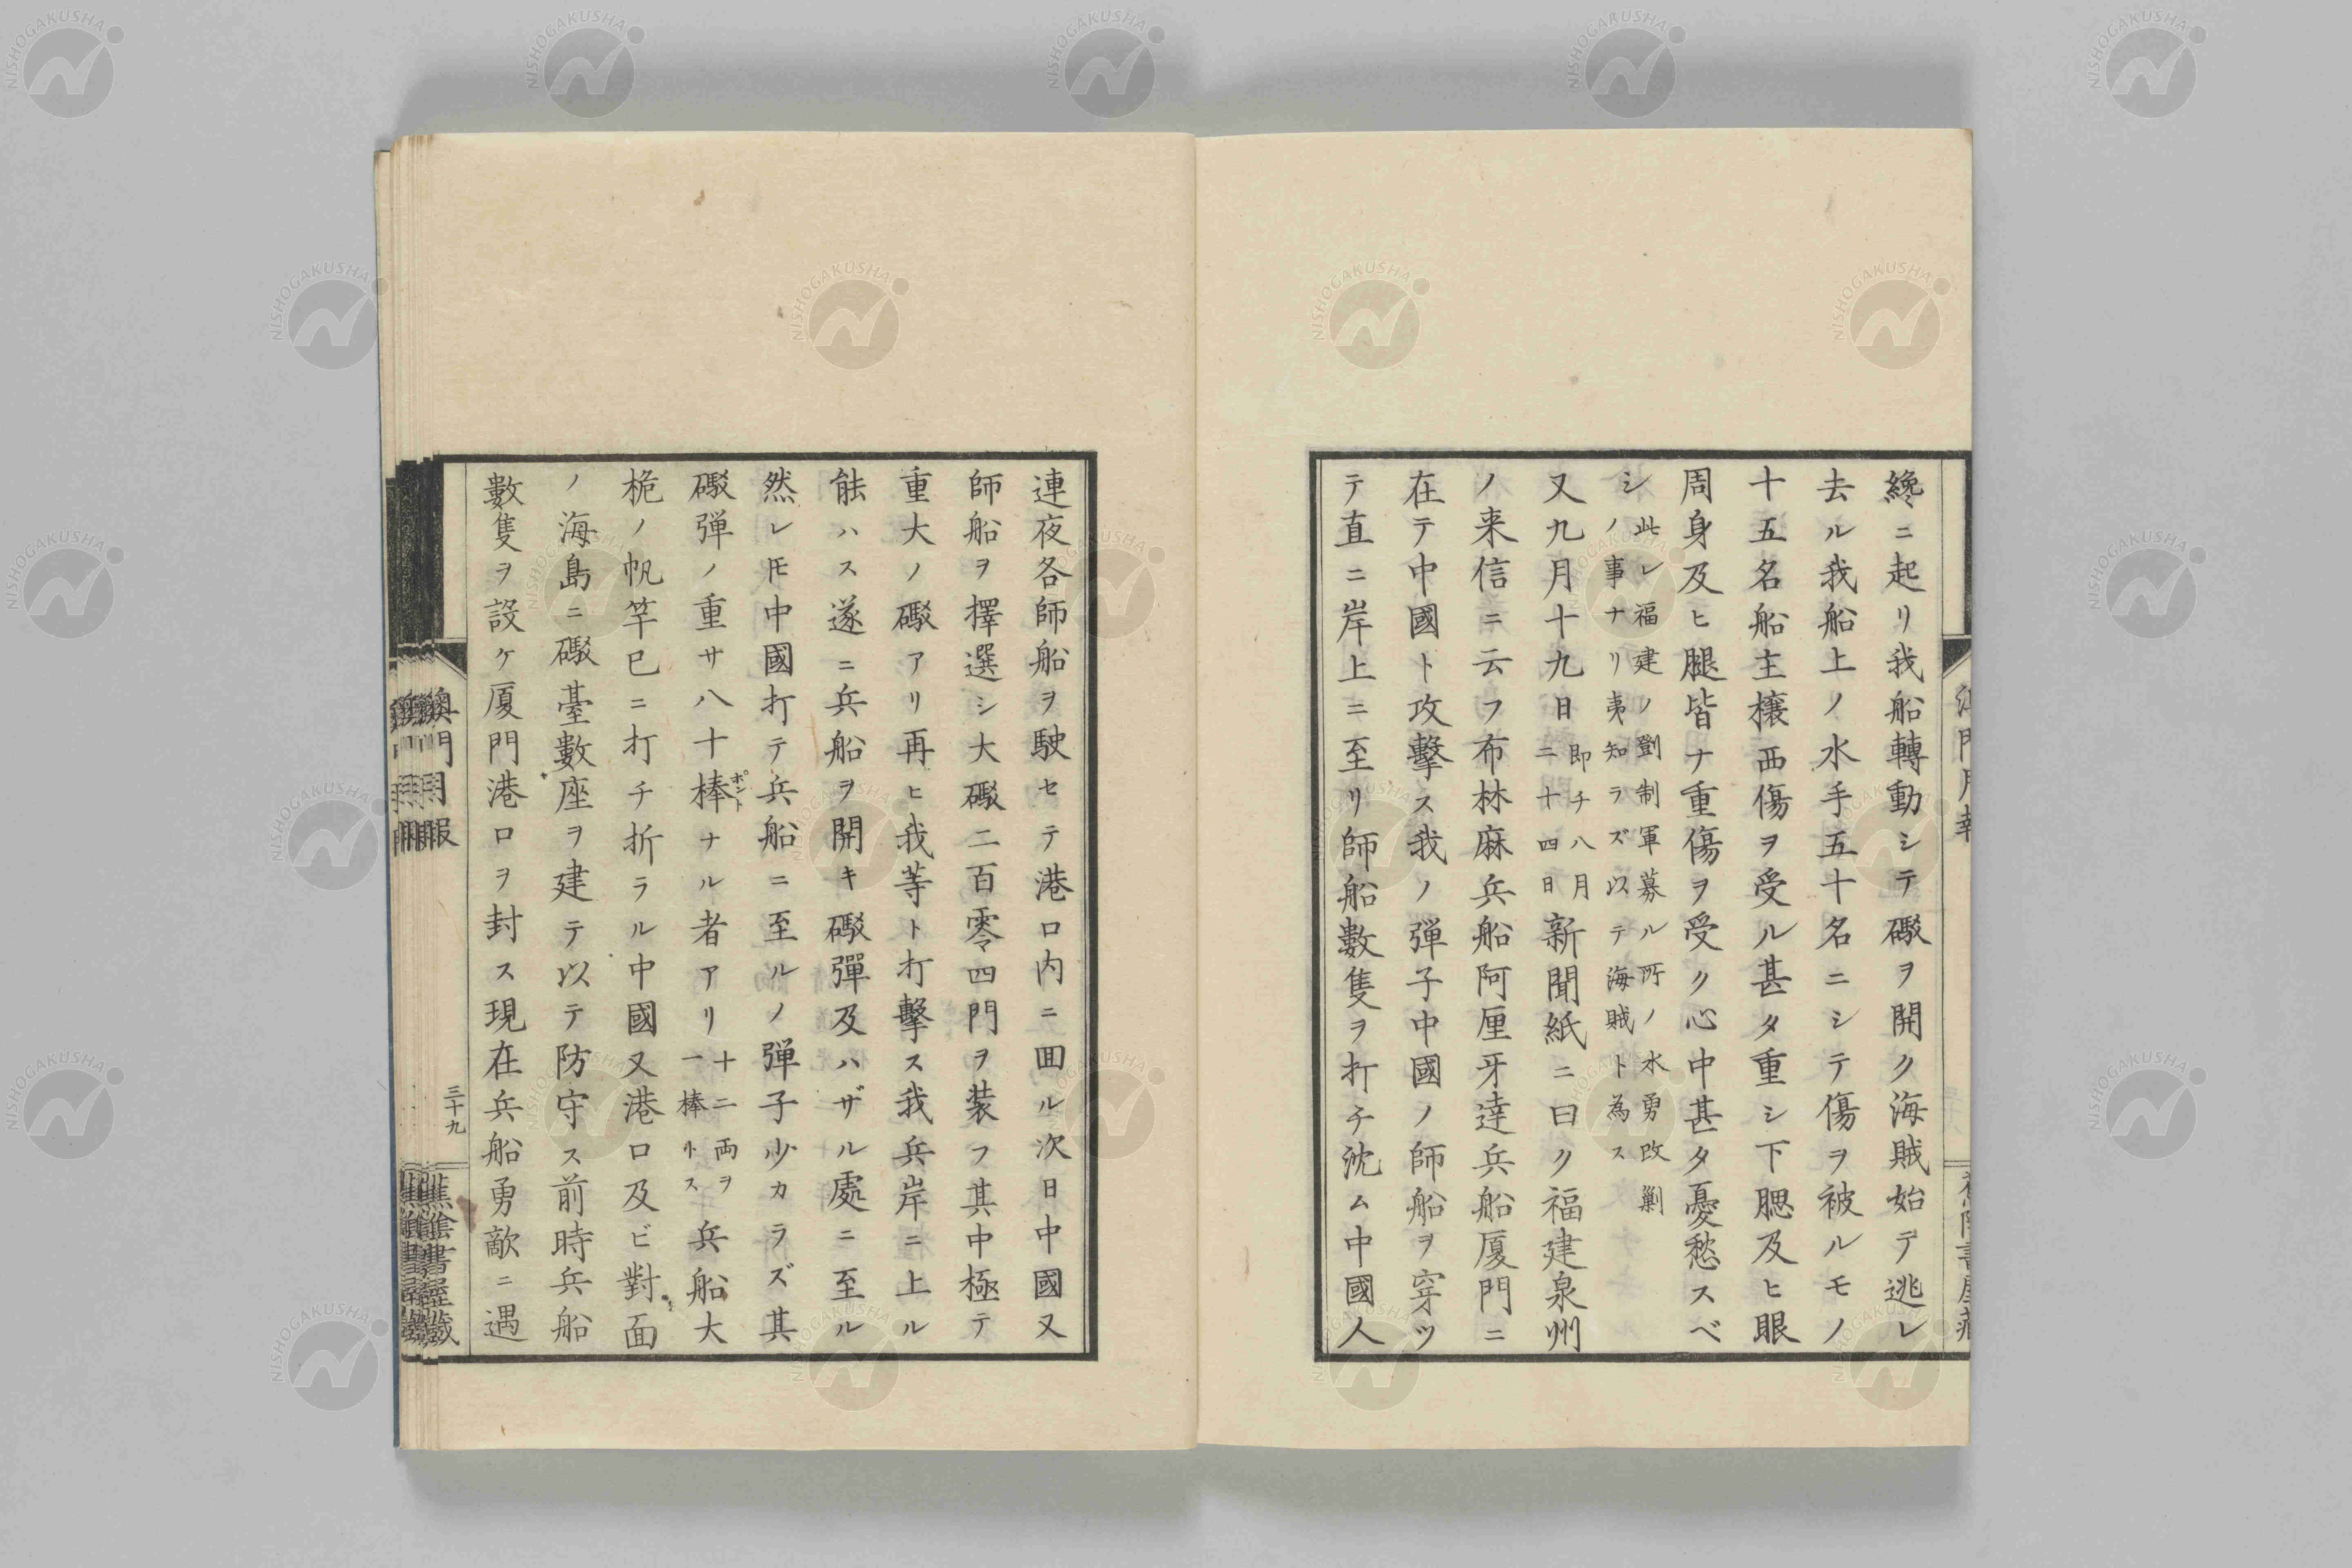 纔ニ起リ我船轉動シテ礟ヲ開ク海賊始テ逃レ
去ル我船上ノ水手五十名ニシテ傷ヲ被ルモノ
十五名船主檺西傷ヲ受ル甚タ重シ下腮及ヒ眼
周身及ヒ腿皆ナ重傷ヲ受ク心中甚タ憂愁スベ
シ此レ福建ノ劉制軍募ル所ノ水勇改剿
ノ事ナリ夷知ラズ以テ海賊ト為ス
又九月十九日即チ八月二十四日新聞紙ニ曰ク福建泉州
ノ来信ニ云フ布林麻兵船阿厘牙達兵船厦門ニ
在テ中國ト攻擊ス我ノ弾子中國ノ師船ヲ穿ツ
テ直ニ岸上ニ至リ師船數隻ヲ打チ沈ム中國人
連夜各師船ヲ駛セテ港口内ニ囬ル次日中國又
師船ヲ擇選シ大礟二百零四門ヲ装フ其中極テ
重大ノ礟アリ再ヒ我等ト打擊ス我兵岸ニ上ル
能ハス遂ニ兵船ヲ開キ礟彈及ハザル處ニ至ル
然レ𪜈中國打テ兵船ニ至ルノ弾子少カラズ其
礟弾ノ重サ八十棒ポントナル者アリ十二両ヲ一棒トス兵船大
桅ノ帆竿已ニ打チ折ラル中國又港口及ビ對面
ノ海島ニ礟臺數座ヲ建テ以テ防守ス前時兵船
數隻ヲ設ケ厦門港口ヲ封ス現在兵船勇敵ニ遇
澳門月報
三十九
蕉陰書屋藏